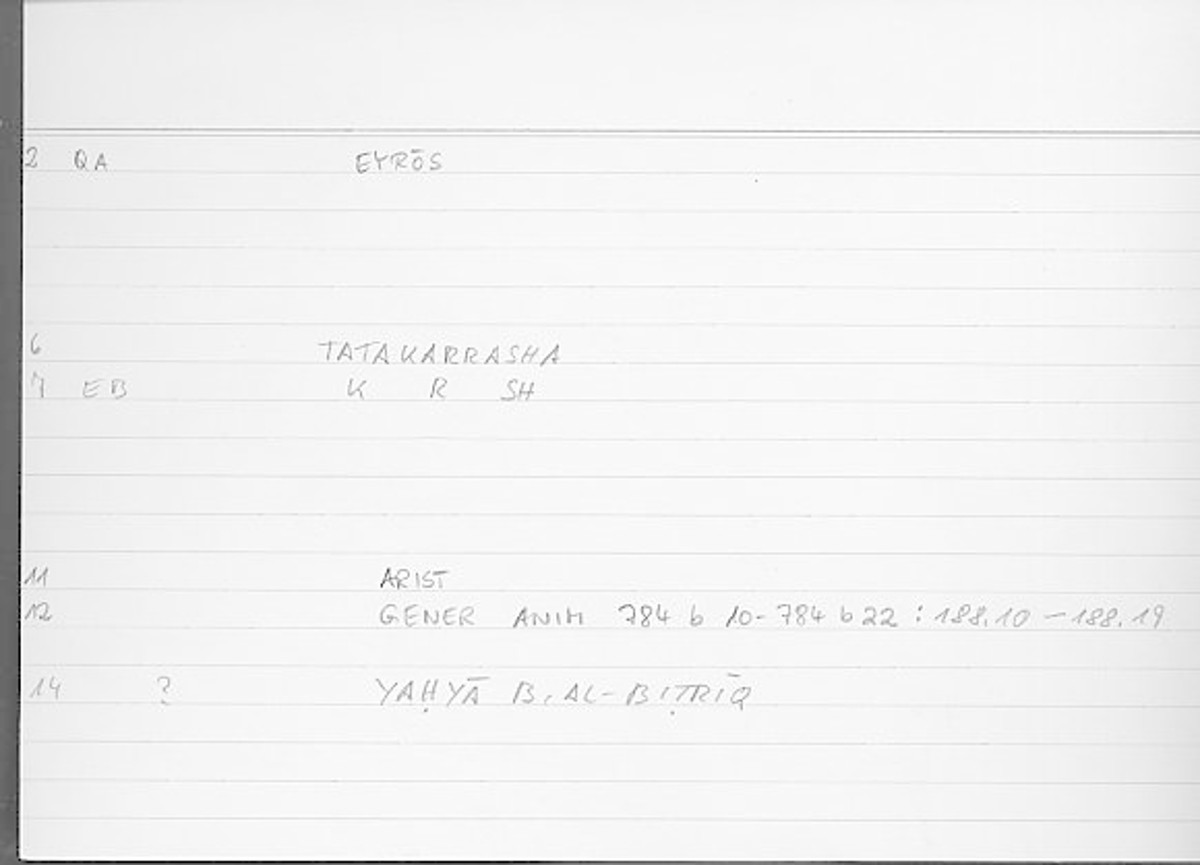 2 QA EYRŌS
6 TATAKARRASHA
7 EB K R SH
11 ARIST
12 GENER ANIM 784 b 10-784 b 22 : 188.10 – 188.19
14 ? YAḤYĀ B. AL-BIṬRĪQ